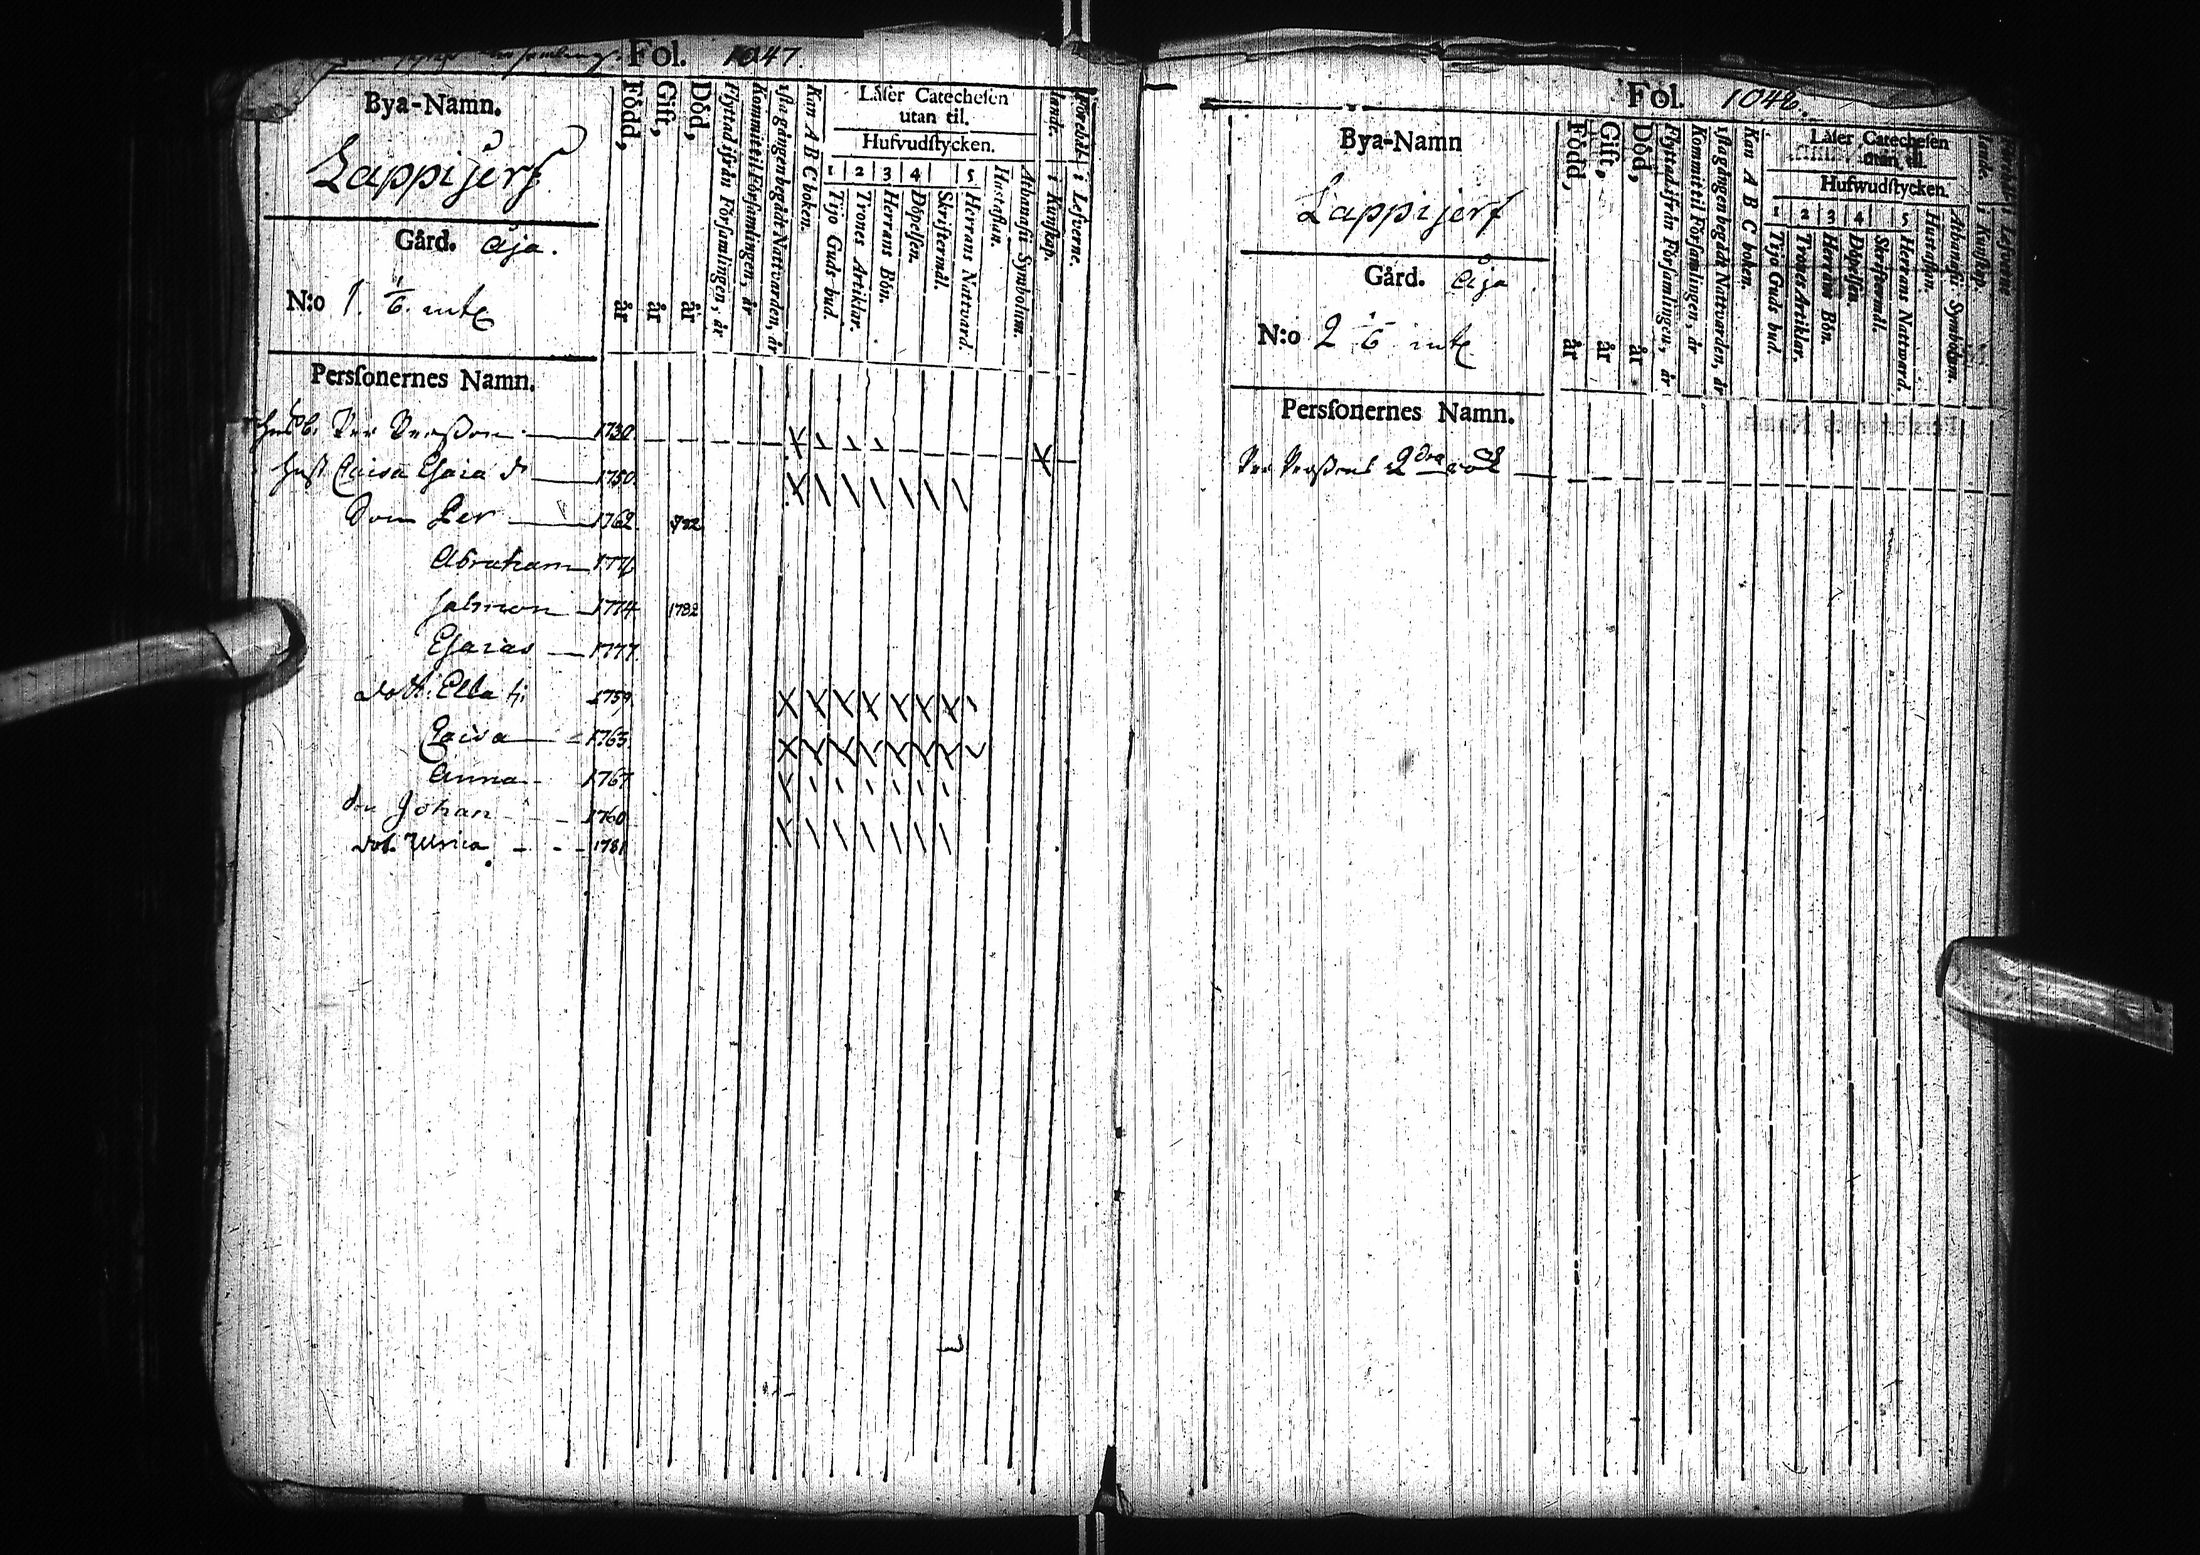 Fol. 1047.
Bya-Namn.
Lappijerf
Gård. Åja.
N:o 1. 1/6. mtl
Persſonernes Namn.
Född, år
Gift, år
Död, år
Flyttad ifrån Förſamlingen, år
Kommit til Förſamlingen, år
1ſta gången begådt Nattvarden, år
Kan A B C boken.
Läſer Catecheſen
utan til.
Hufvudſtycken.
1 2 3 4 5
Tijo Guds bud.
Trones Artiklar.
Herrans Bön.
Döpelſen.
Skriftermål.
Herrans Nattvard.
Huſtaflan.
Athanaſii Symbolum.
i Kunſkap.
i Lefverne.
Husb. Per Persson 1730
Hust Caisa Esaiæ dr 1750
Son Per 1762 1782
Abraham 1776
Salmon 1774 1782
Esaias 1777.
dott. Ella 1759
Caisa 1763.
Anna 1767
Johan 1760
dot. Ulrica 1781
Fol. 1048.
Bya-Namn
Lappijerf
Gård. Åja
N:o 2 1/6 mtl
Persſonernes Namn.
Född, år
Gift, år
Död, år
Flyttad ifrån Förſamlingen, år
Kommit til Förſamlingen, år
1ſta gången begådt Nattvarden, år
Kan A B C boken.
Läſer Catecheſen
utan til.
Hufwudſtycken.
1 2 3 4 5
Tijo Guds bud.
Trones Artiklar.
Herrans Bön.
Döpelſen.
Skriftermål.
Herrans Nattward.
Huſtaflan.
Athanaſii Symbolum.
i Kunſkap.
i Lefverne
Per Perssons 2dra